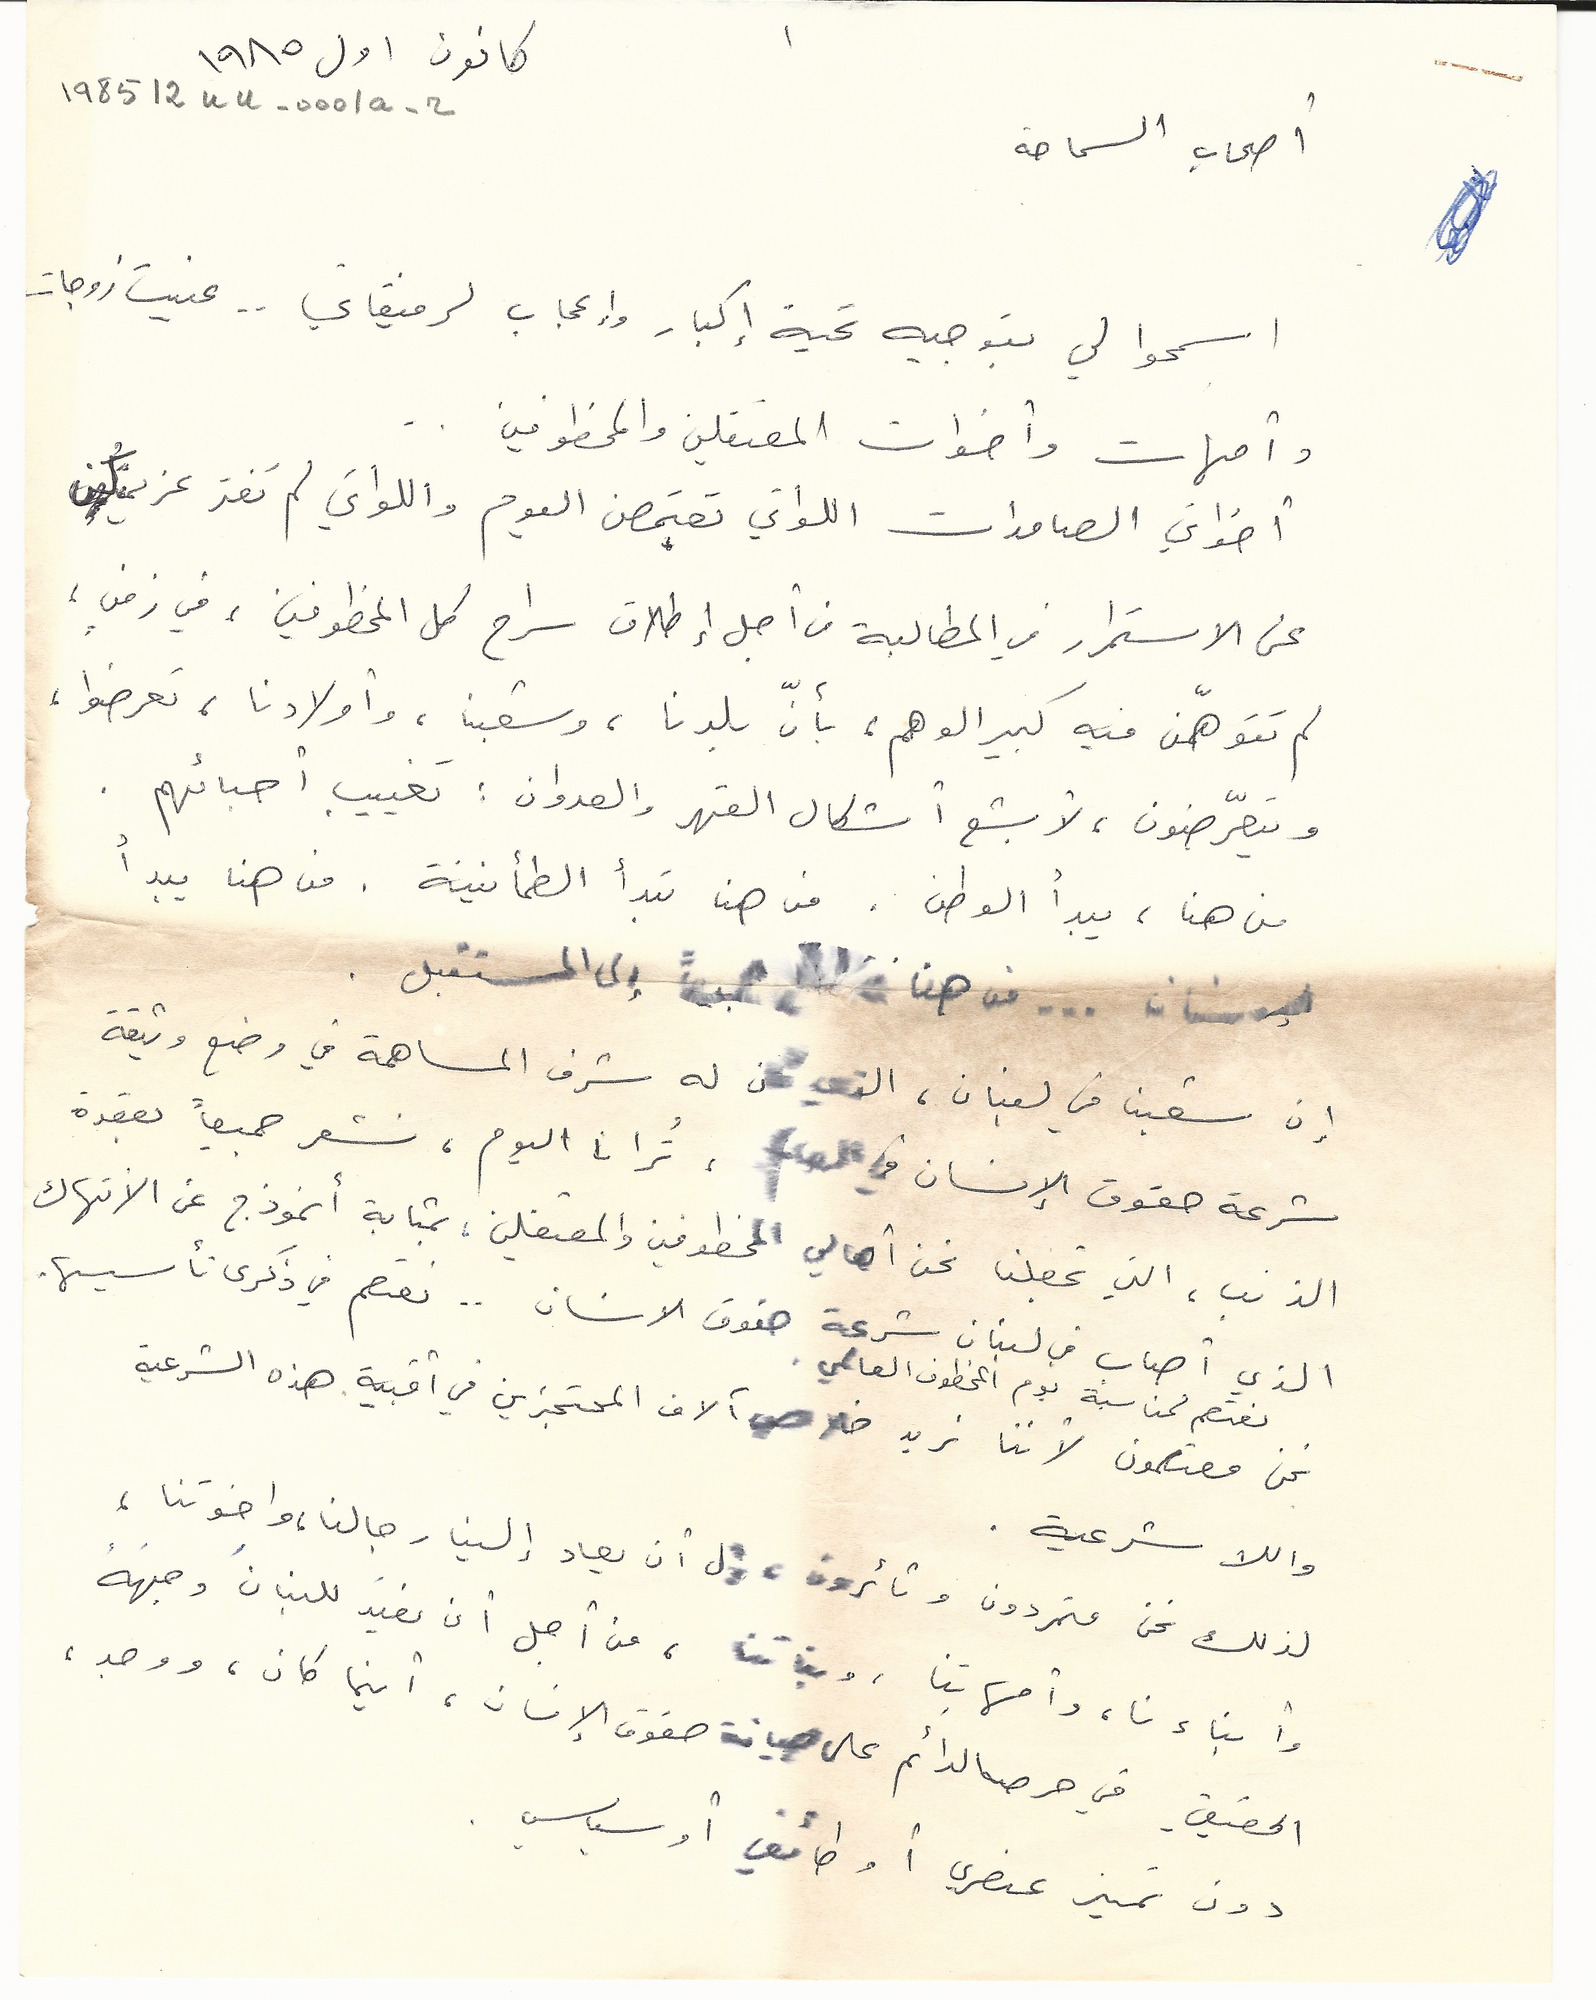 ١
كانون اول ١٩٨٥
198512 uu-0001a-2
أصحاب السماحة
اسمحوا لي بتوجيه تحية إكبار وإعجاب لرفيقاتي .. عنيت زوجات
وأمهات وأخوات المعتقلين والمخطوفين ..
أخواتي الصامدات اللواتي تعتصمن اليوم واللواتي لم تفتر عزيمتهن
عن الاستمرار في المطالبة من أجل إطلاق سراح كل المخطوفين ، في زمنٍ ،
لم تتوهمّن فيه كبير الوهم ، بأنّ بلدنا ، وشعبنا ، وأولادنا ، تعرضوا ،
ويتعرّضون ، لأبشع أشكال القهر والعدوان : تغييب أحبائهم .
من هنا ، يبدأ الوطن . من هنا تبدأ الطمأنينة . من هنا يبدأ
الإنسان ... من هنا جميعاً إلى المستقبل .
إن شعبنا في لبنان ، الذي كان له شرف المساهمة في وضع وثيقة
شرعة حقوق الإنسان في العالم ، تُرانا اليوم ، نشعر جميعاً بعقدة
الذنب ، التي تجعلنا نحن أهالي المخطوفين والمعتقلين ، بمثابة أنموذج عن الانتهاك
الذي أصاب في لبنان شرعة حقوق الانسان .. نعتصم في ذكرى تأسيسها .
نعتصم لمناسبة يوم المخطوف العالمي .
نحن معتصمون لأننا نريد خلاص آلاف المحتجزين في أقبية هذه الشرعية
واللا شرعية .
لذلك نحن متمردون وثائرون ، لـ أن يعاد إلينا رجالنا ، واخوتنا ،
وأبناءنا ، وأمهاتنا ، وبناتنا ، من أجل أن نعيدَ للبنانَ وجهَهُ
الحقيقي في حرصه الدائم على صيانة حقوق الإنسان ، أينما كان ، ووجد ،
دون تميز عنصري أو طائفي أو سياسي .